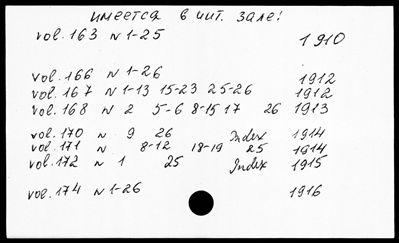 имеется в чит. зале!
vol. 163 N 1-25 1910
vol. 166 N 1-26 1912
vol. 167 N 1-13 15-23 25-26 1912
vol. 168 N 2 5-6 8-15 17 26 1913
vol. 170 N 9 26 Index 1914
vol. 171 N 8-12 18-19 25 1814
vol. 172 N 1 25 Index 1915
vol. 174 N 1-26 1916